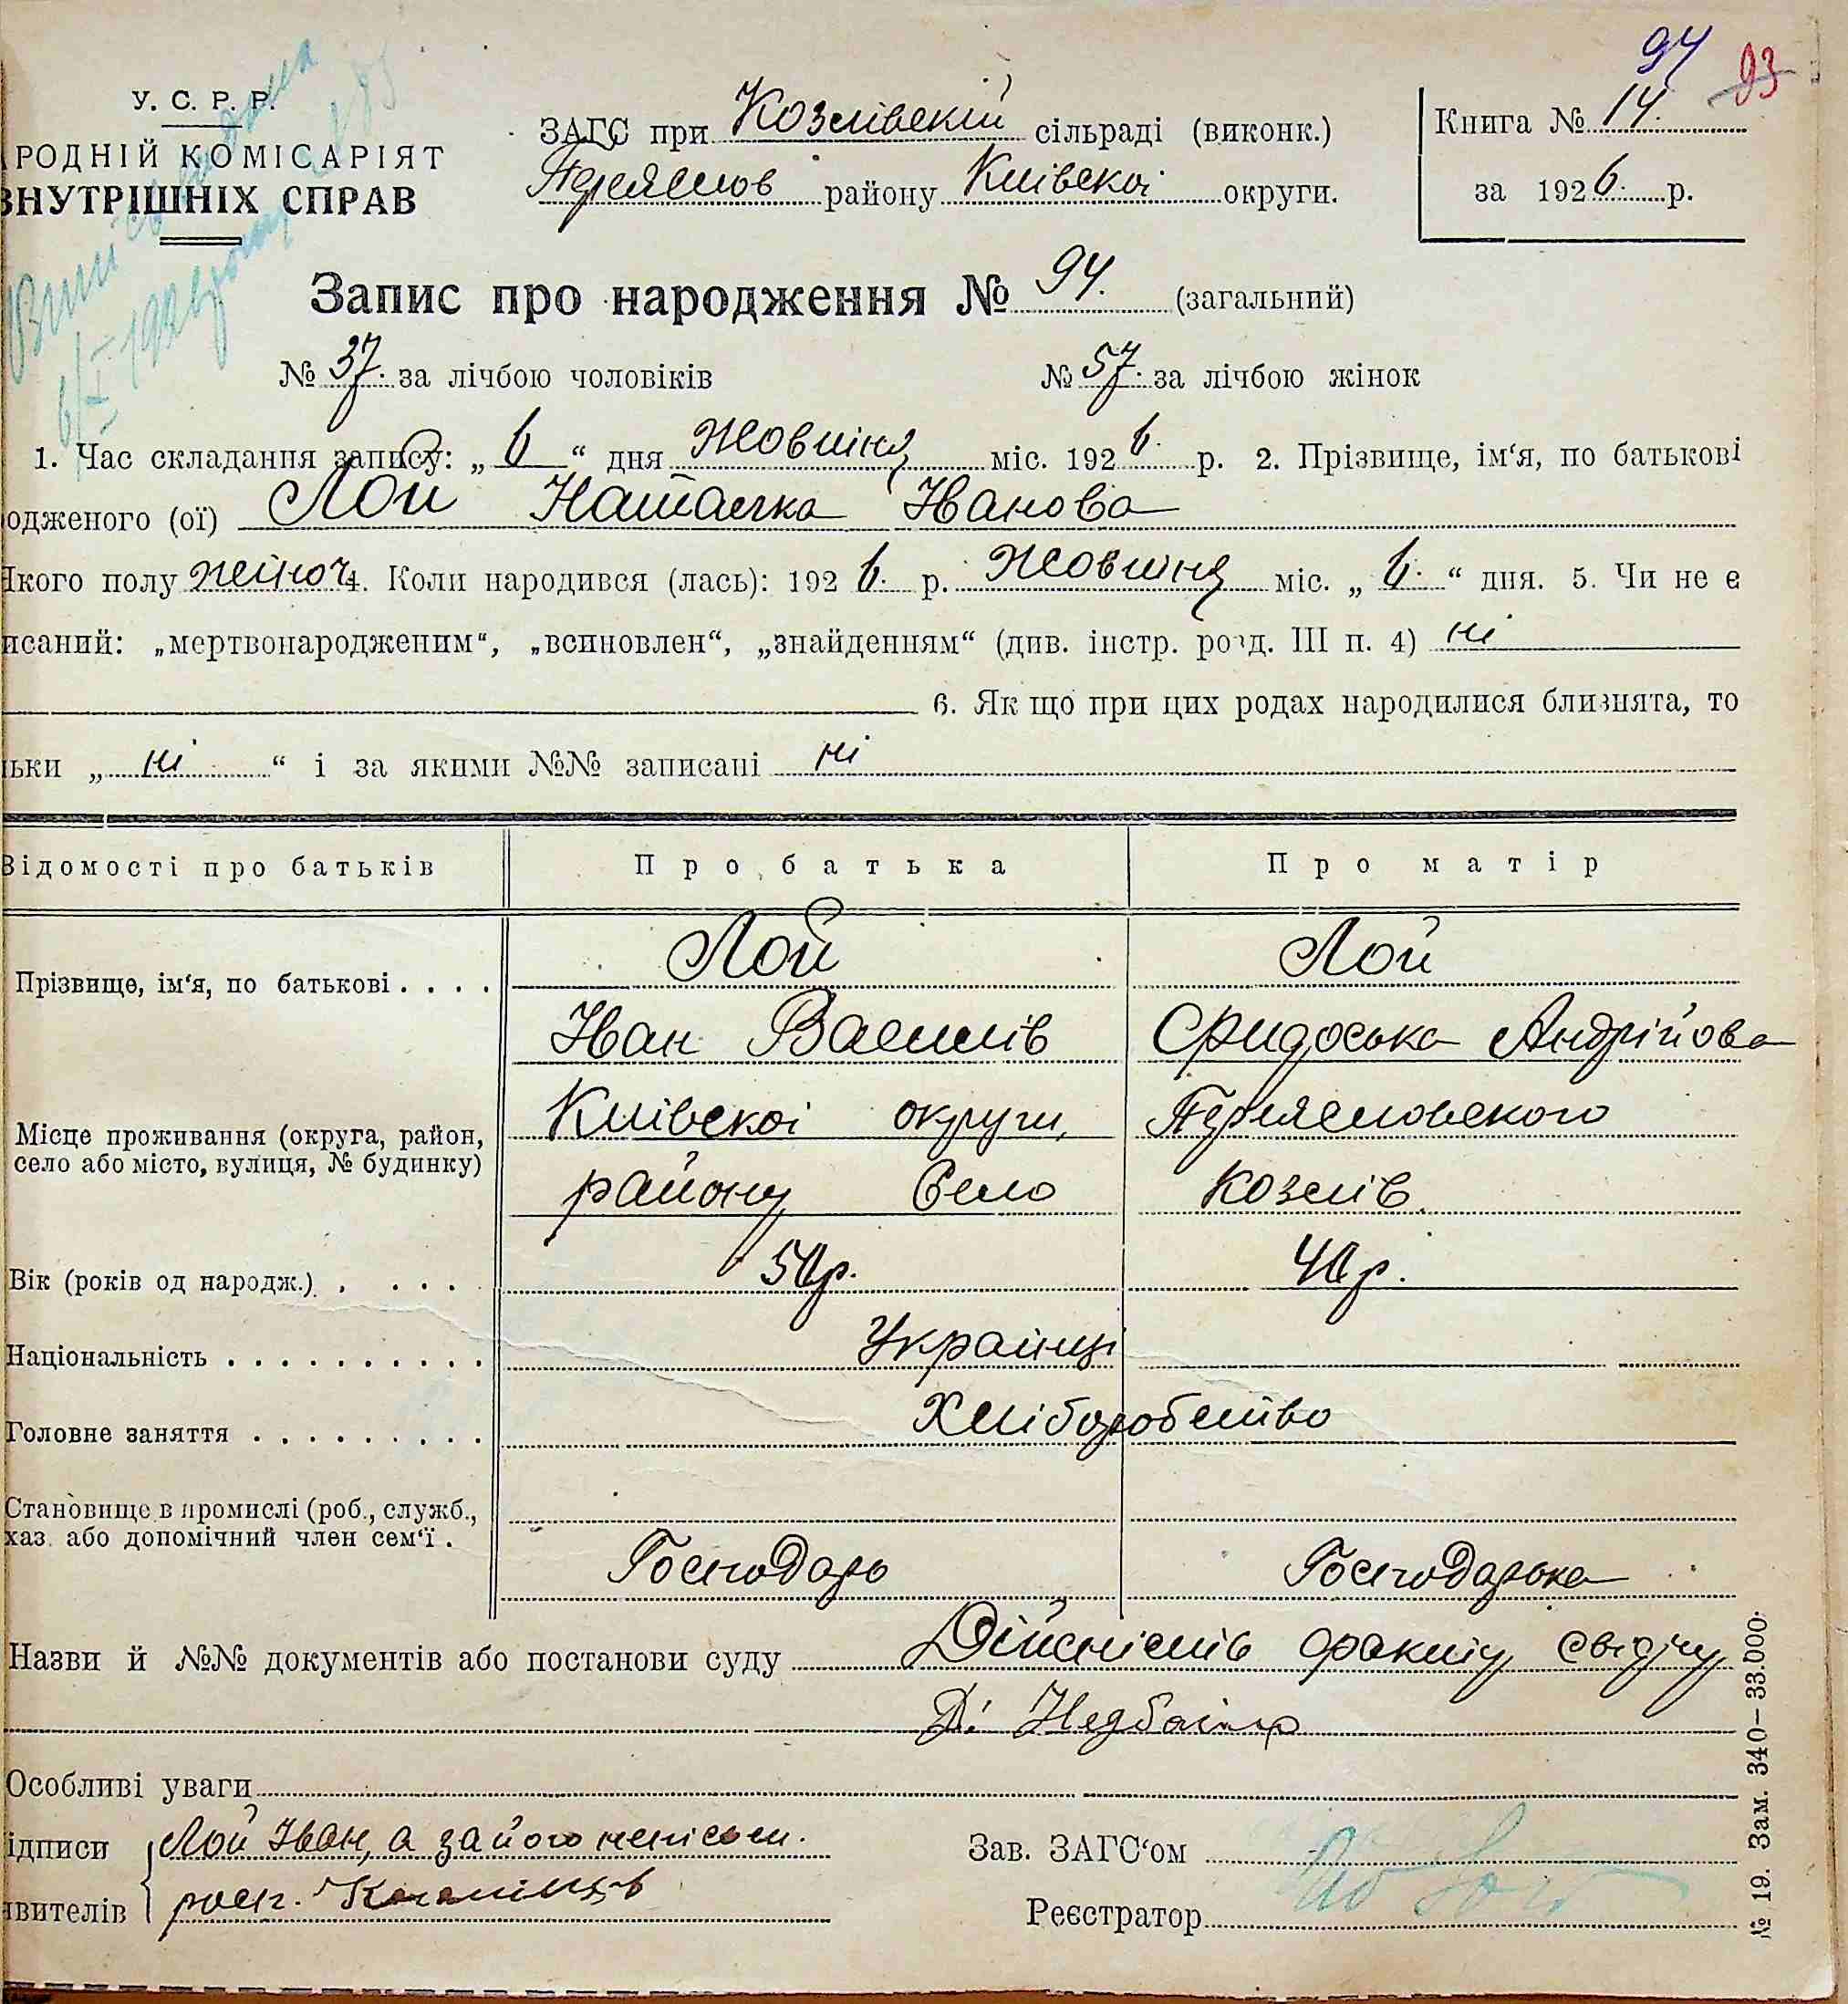 94 93
У. С. Р. Р.
РОДНІЙ КОМІСАРІЯТ
ВНУТРІШНІХ СПРАВ
ЗАГС при Козлівскій сільраді (виконк.)
Переяслов району Київскоі округи.
Книга № 14.
за 1926. р.
Запис про народження № 94. (загальний)
№ 37. за лічбою чоловіків № 57. за лічбою жінок
1. Час складання запису: „ 6 “ дня Жовтня міс. 192 6. р. 2. Прізвище, ім‘я, по батькові
одженого (ої) Лой Наталка Іванова
Якого полу жіноч 4. Коли народився (лась): 192 6. р. Жовтня міс. „ 6. “ дня. 5. Чи не є
исаний: „мертвонародженим“, „всиновлен“, „знайденням“ (див. інстр. розд. III п. 4) ні
6. Як що при цих родах народилися близнята, то
льки „ ні “ і за якими №№ записані ні
Відомості про батьків Про батька Про матір
Прізвище, ім‘я, по батькові . . . . Лой Лой
Іван Василів Фидоська Андрійова
Місце проживання (округа, район, село або місто, вулиця, № будинку)
Київскоі округи, Переясловского
району Село Козлів
Вік (років од народж.) . . . . 50р. 40р.
Національність . . . . . . . . . . Українці
Головне заняття . . . . . . . . . Хліборобство
Становище в промислі (роб., служб.,
хаз. або допомічний член сем‘ї .
Господарь Господарька
Назви й №№ документів або постанови суду Дійсність факту свідчу
Д. Недбаїло
Особливі уваги
ідписи Лой Іван, а за його непісьм.
явителів росп.
Зав. ЗАГС‘ом
Реєстратор
№ 19. Зам. 340—33.000.